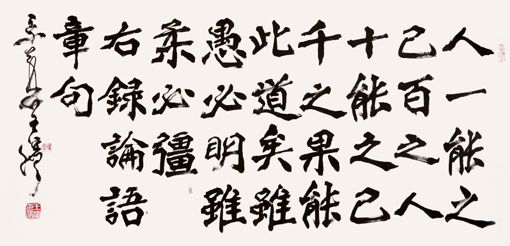 人一能之
己百之人
十能之己
千之果能
此道矣雖
愚必明雖
柔必彊
右録論語
章句